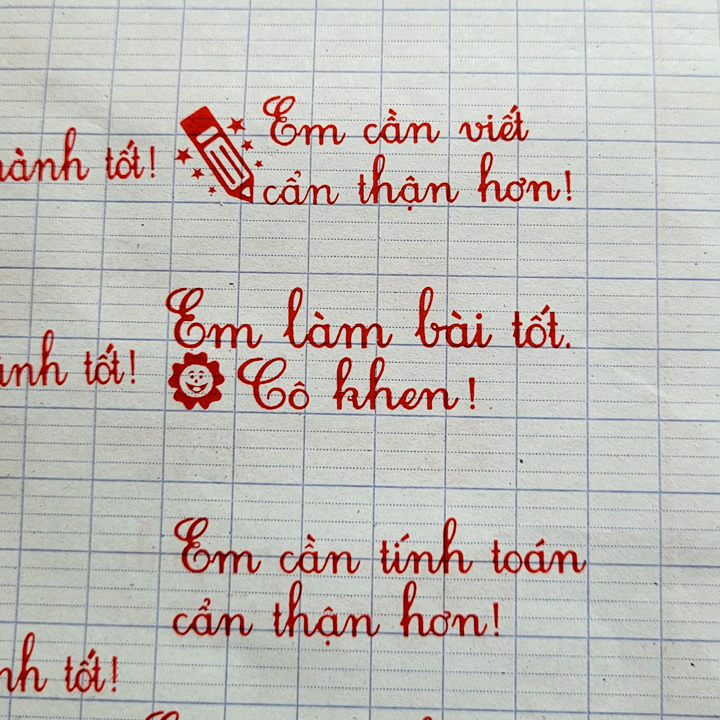 tốt!
Em cần viết
cẩn thận hơn!
Em làm bài tốt.
tốt!
Cô khen!
Em cần tính toán
cẩn thận hơn!
tốt!